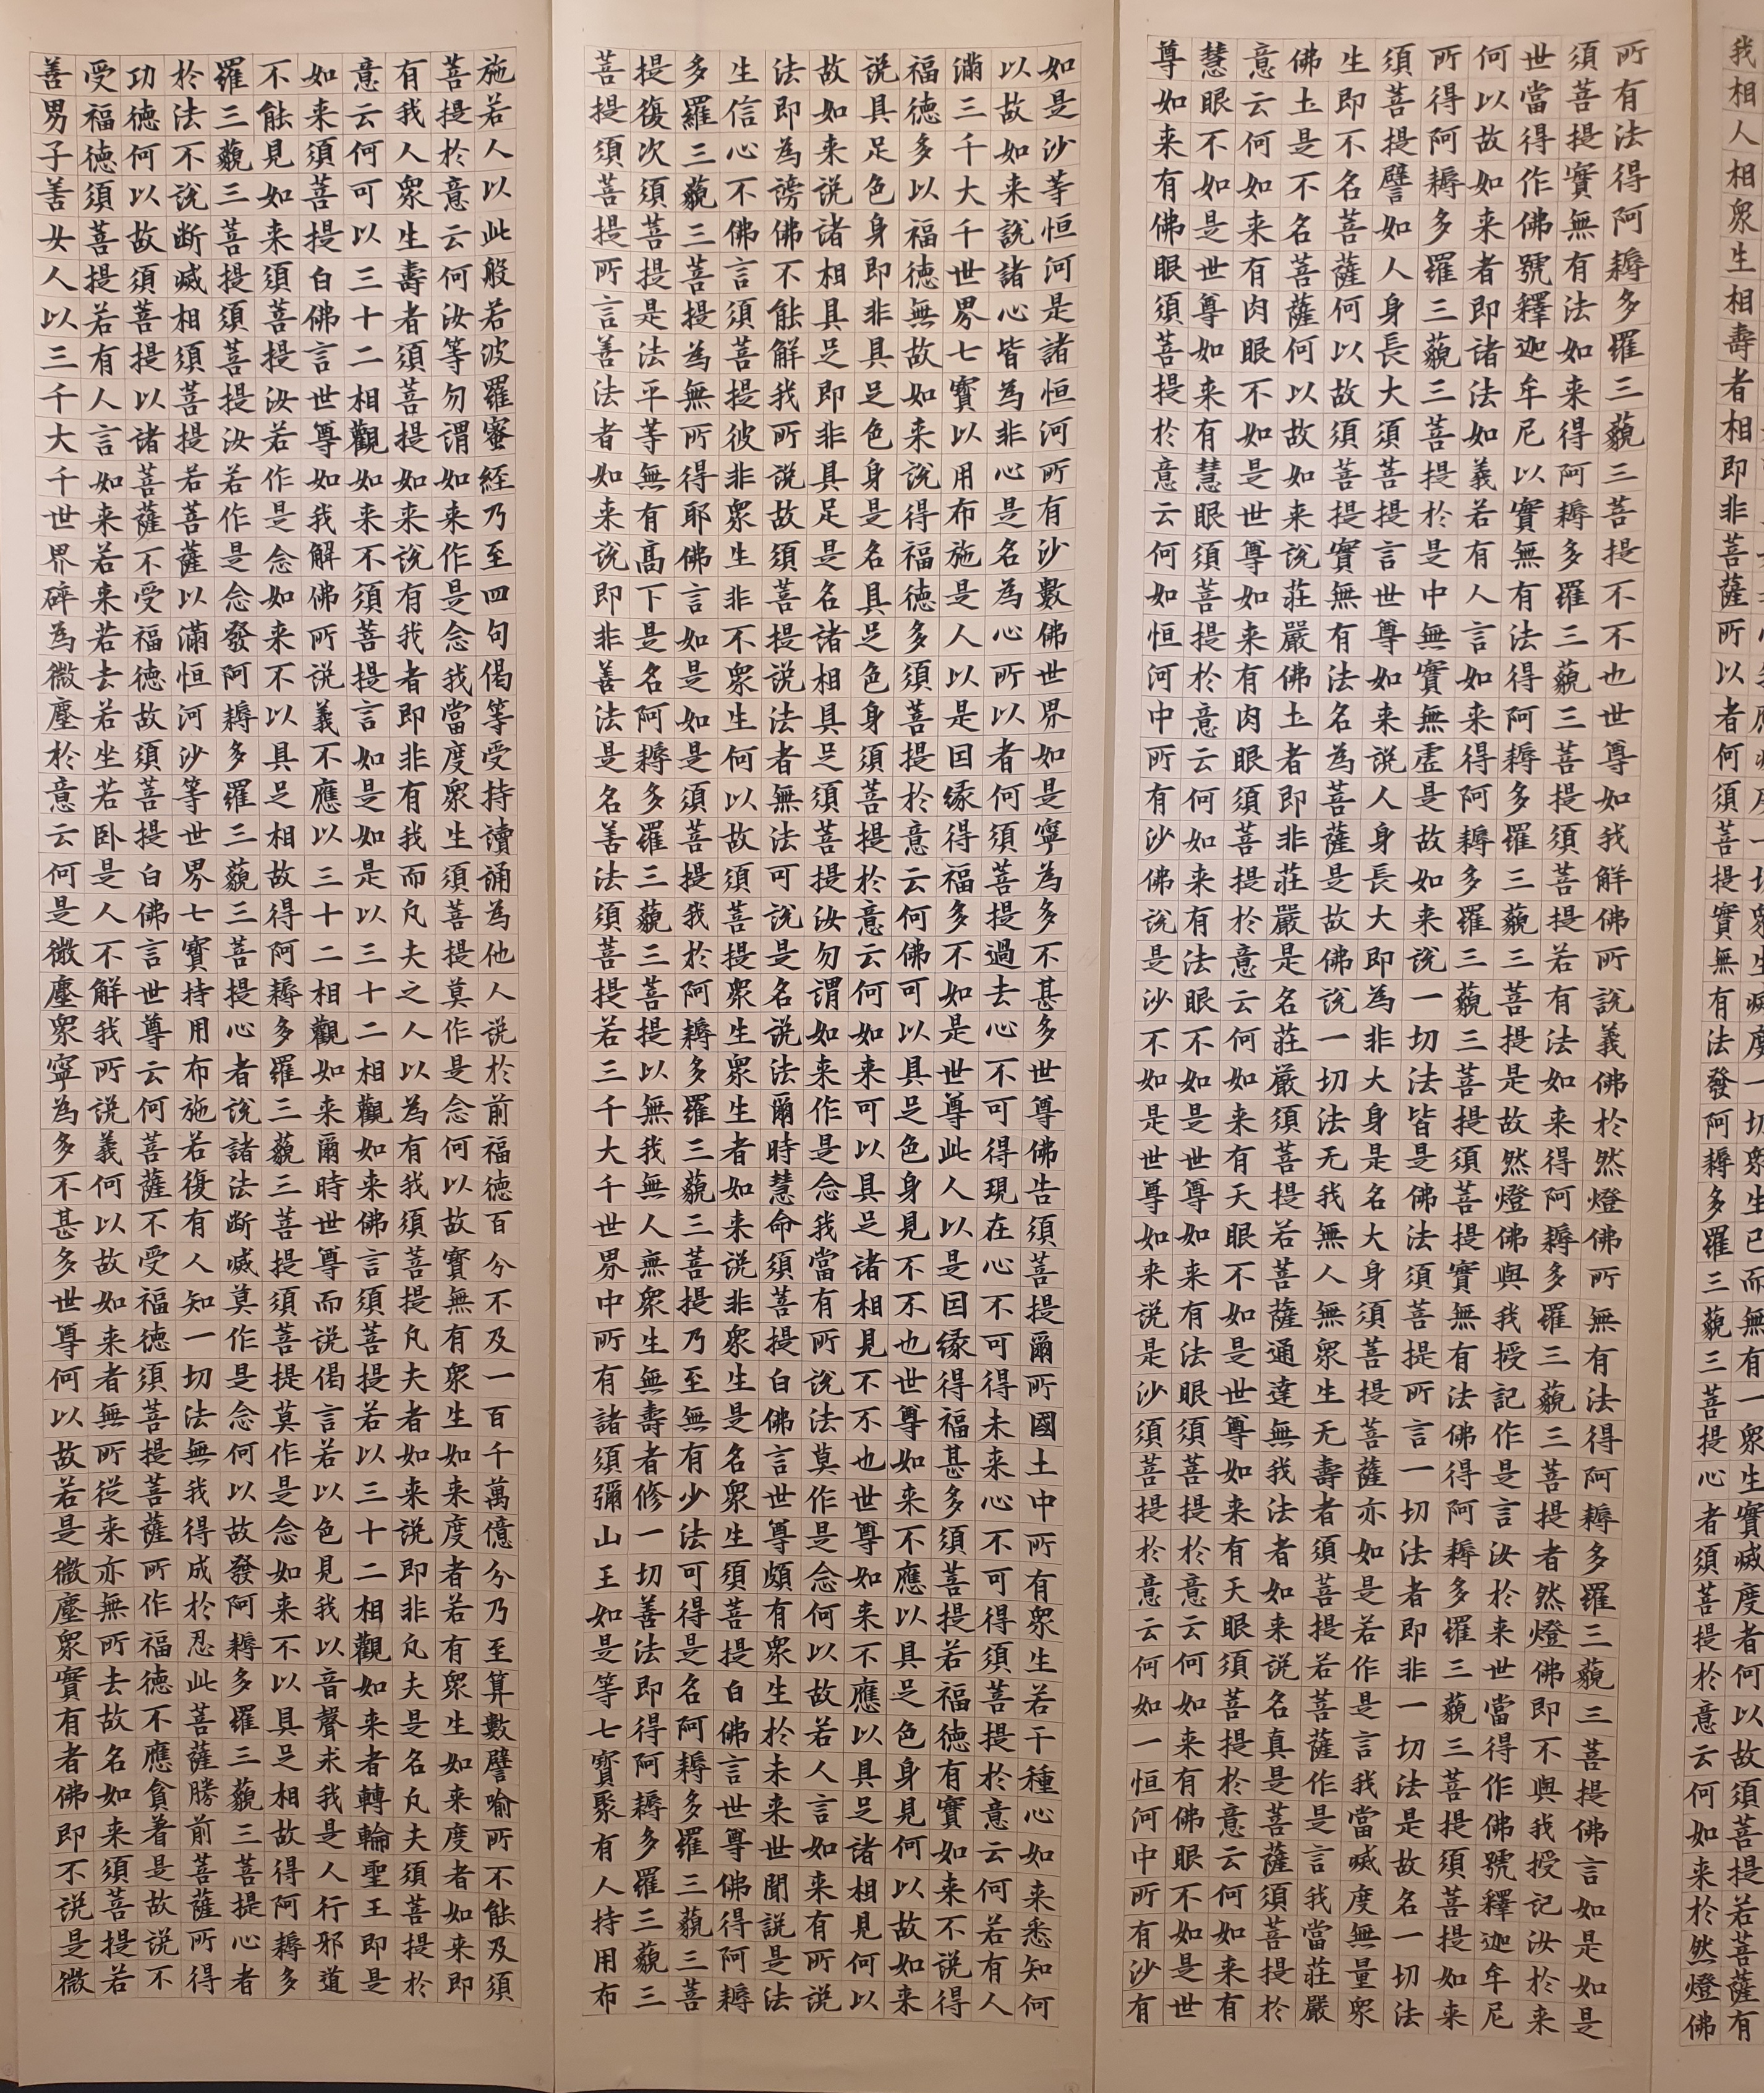 生已而無有一衆生實滅度者何以故須菩提若菩薩有
我相人相衆生相壽者相即非菩薩所以者何須菩提實無有法發阿耨多羅三藐三菩提心者須菩提於意云何如来於然燈佛
所有法得阿耨多羅三藐三菩提不不也世尊如我解佛所說義佛於然燈佛所無有法得阿耨多羅三藐三菩提佛言如是如是
須菩提實無有法如来得阿耨多羅三藐三菩提須菩提若有法如来得阿耨多羅三藐三菩提者然燈佛即不與我授記汝於来
世當得作佛號釋迦牟尼以實無有法得阿耨多羅三藐三菩提是故然燈佛與我授記作是言汝於来世當得作佛號釋迦牟尼
何以故如来者即諸法如義若有人言如来得阿耨多羅三藐三菩提須菩提實無有法佛得阿耨多羅三藐三菩提須菩提如来
所得阿耨多羅三藐三菩提於是中無實無虛是故如来說一切法皆是佛法須菩提所言一切法者即非一切法是故名一切法
須菩提譬如人身長大須菩提言世尊如来說人身長大即為非大身是名大身須菩提菩薩亦如是若作是言我當滅度無量衆
生即不名菩薩何以故須菩提實無有法名為菩薩是故佛說一切法无我無人無衆生无壽者須菩提若菩薩作是言我當莊嚴
佛土是不名菩薩何以故如来說莊嚴佛土者即非莊嚴是名莊嚴須菩提若菩薩通達無我法者如来說名真是菩薩須菩提於
意云何如来有肉眼不如是世尊如来有肉眼須菩提於意云何如来有天眼不如是世尊如来有天眼須菩提於意云何如来有
慧眼不如是世尊如来有慧眼須菩提於意云何如来有法眼不如是世尊如来有法眼須菩提於意云何如来有佛眼不如是世
尊如来有佛眼須菩提於意云何如恒河中所有沙佛說是沙不如是世尊如来說是沙須菩提於意云何如一恒河中所有沙有
如是沙等恒河是諸恒河所有沙數佛世界如是寧為多不甚多世尊佛告須菩提爾所國土中所有衆生若干種心如来悉知何
以故如来說諸心皆為非心是名為心所以者何須菩提過去心不可得現在心不可得未来心不可得須菩提於意云何若有人
滿三千大千世界七寶以用布施是人以是因緣得福多不如是世尊此人以是因緣得福甚多須菩提若福德有實如来不說得
福德多以福德無故如来說得福德多須菩提於意云何佛可以具足色身見不不也世尊如来不應以具足色身見何以故如来
說具足色身即非具足色身是名具足色身須菩提於意云何如来可以具足諸相見不不也世尊如来不應以具足諸相見何以
故如来說諸相具足即非具足是名諸相具足須菩提汝勿謂如来作是念我當有所說法莫作是念何以故若人言如来有所說
法即為謗佛不能解我所說故須菩提說法者無法可說是名說法爾時慧命須菩提白佛言世尊頗有衆生於未来世聞說是法
生信心不佛言須菩提彼非衆生非不衆生何以故須菩提衆生衆生者如来說非衆生是名衆生須菩提白佛言世尊佛得阿耨
多羅三藐三菩提為無所得耶佛言如是如是須菩提我於阿耨多羅三藐三菩提乃至無有少法可得是名阿耨多羅三藐三菩
提復次須菩提是法平等無有高下是名阿耨多羅三藐三菩提以無我無人無衆生無壽者修一切善法即得阿耨多羅三藐三
菩提須菩提所言善法者如来說即非善法是名善法須菩提若三千大千世界中所有諸須彌山王如是等七寶聚有人持用布
施若人以此般若波羅蜜経乃至四句偈等受持讀誦為他人說於前福德百分不及一百千萬億分乃至算數譬喻所不能及須
菩提於意云何汝等勿謂如来作是念我當度衆生須菩提莫作是念何以故實無有衆生如来度者若有衆生如来度者如来即
有我人衆生壽者須菩提如来說有我者即非有我而凡夫之人以為有我須菩提凡夫者如来說即非凡夫是名凡夫須菩提於
意云何可以三十二相觀如来不須菩提言如是如是以三十二相觀如来佛言須菩提若以三十二相觀如来者轉輪聖王即是
如来須菩提白佛言世尊如我解佛所說義不應以三十二相觀如来爾時世尊而說偈言若以色見我以音聲求我是人行邪道
不能見如来須菩提汝若作是念如来不以具足相故得阿耨多羅三藐三菩提須菩提莫作是念如来不以具足相故得阿耨多
羅三藐三菩提須菩提汝若作是念發阿耨多羅三藐三菩提心者說諸法断滅莫作是念何以故發阿耨多羅三藐三菩提心者
於法不說断滅相須菩提若菩薩以滿恒河沙等世界七寶持用布施若復有人知一切法無我得成於忍此菩薩勝前菩薩所得
功德何以故須菩提以諸菩薩不受福德故須菩提白佛言世尊云何菩薩不受福德須菩提菩薩所作福德不應貪著是故說不
受福德須菩提若有人言如来若来若去若坐若卧是人不解我所說義何以故如来者無所從来亦無所去故名如来須菩提若
善男子善女人以三千大千世界碎為微塵於意云何是微塵衆寧為多不甚多世尊何以故若是微塵衆實有者佛即不說是微